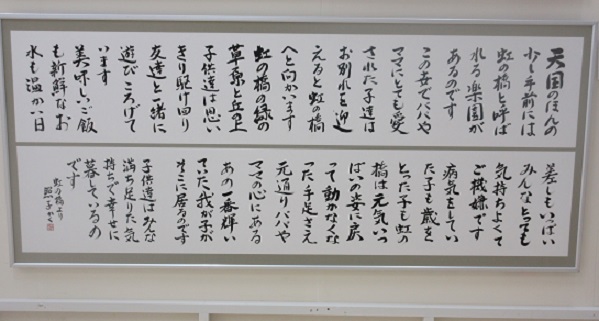 天国のほんの
少し手前には
虹の橋と呼ば
れる楽園が
あるのです
この世でパパや
ママにとても愛
された子達は
お別れを迎
えると虹の橋
へと向かいます
虹の橋の緑の
草原と丘の上
子供達は思い
きり駆け回り
友達と一緒に
遊びころげて
います
美味しいご飯
も新鮮なお
水も温かい日
差しもいっぱい
みんなとっても
気持ちよくて
ご機嫌です
病気をしてい
た子も歳を
とった子も虹の
橋は元気いっ
ぱいの姿に戻
って動かなくな
った手足さえ
元通りパパや
ママの心にある
あの一番輝い
ていた我が子が
そこに居るのです
子供達はみんな
満ち足りた気
持ちで幸せに
暮しているの
です
虹の橋より